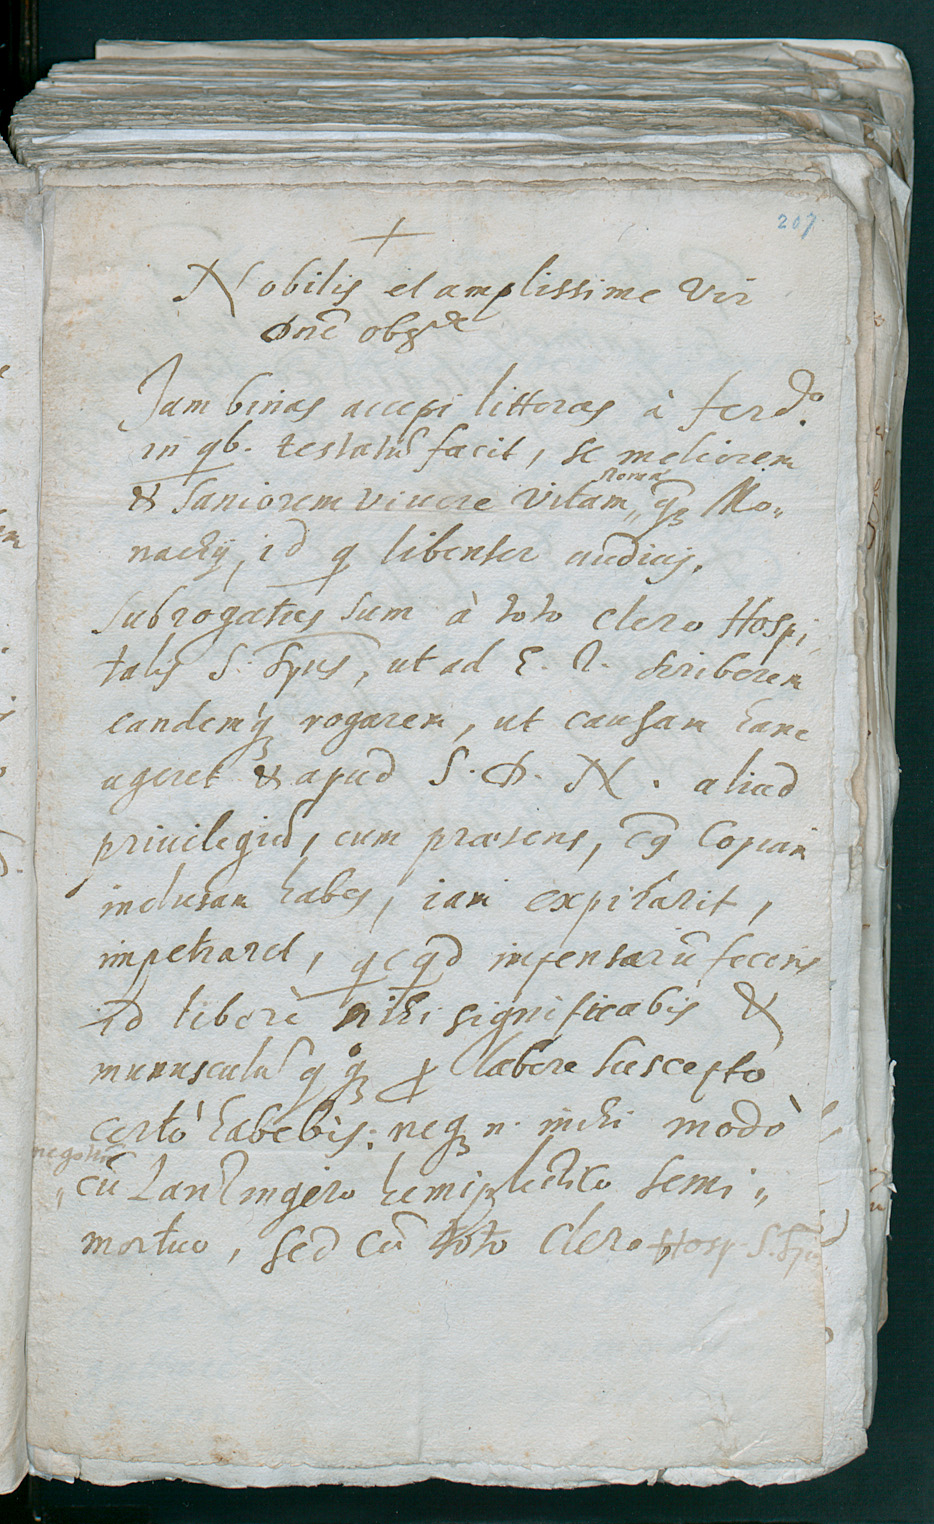 207
+
Nobilis et amplissime Vir
Dne obsde
Jam binas accepi litteras à ferdo.
in qb. testatū facit, se meliorem
& saniorem vivere vitam, Romæ qȝ Mo„
nachij, id q libenter audias.
Subrogatus sum à toto clero Hospi„
talis S. Spus, ut ad E. D. scriberem
eandemqȝ rogarem, ut causam hanc
ageret & apud S. D. N. aliud
privilegiū, cum præsens, cuius Copiam
inclusam habes, iam expirarit,
impetraret, qcqd impensarū feceris
id liberè mihi significabis &
munusculū qqȝ p labore suscepto
certò habebis: neqȝ n. mihi modò
negotiū
„ cū Lanzingero hemiplectico semi„
mortuo, sed cū toto clero Hosp. S. Spus